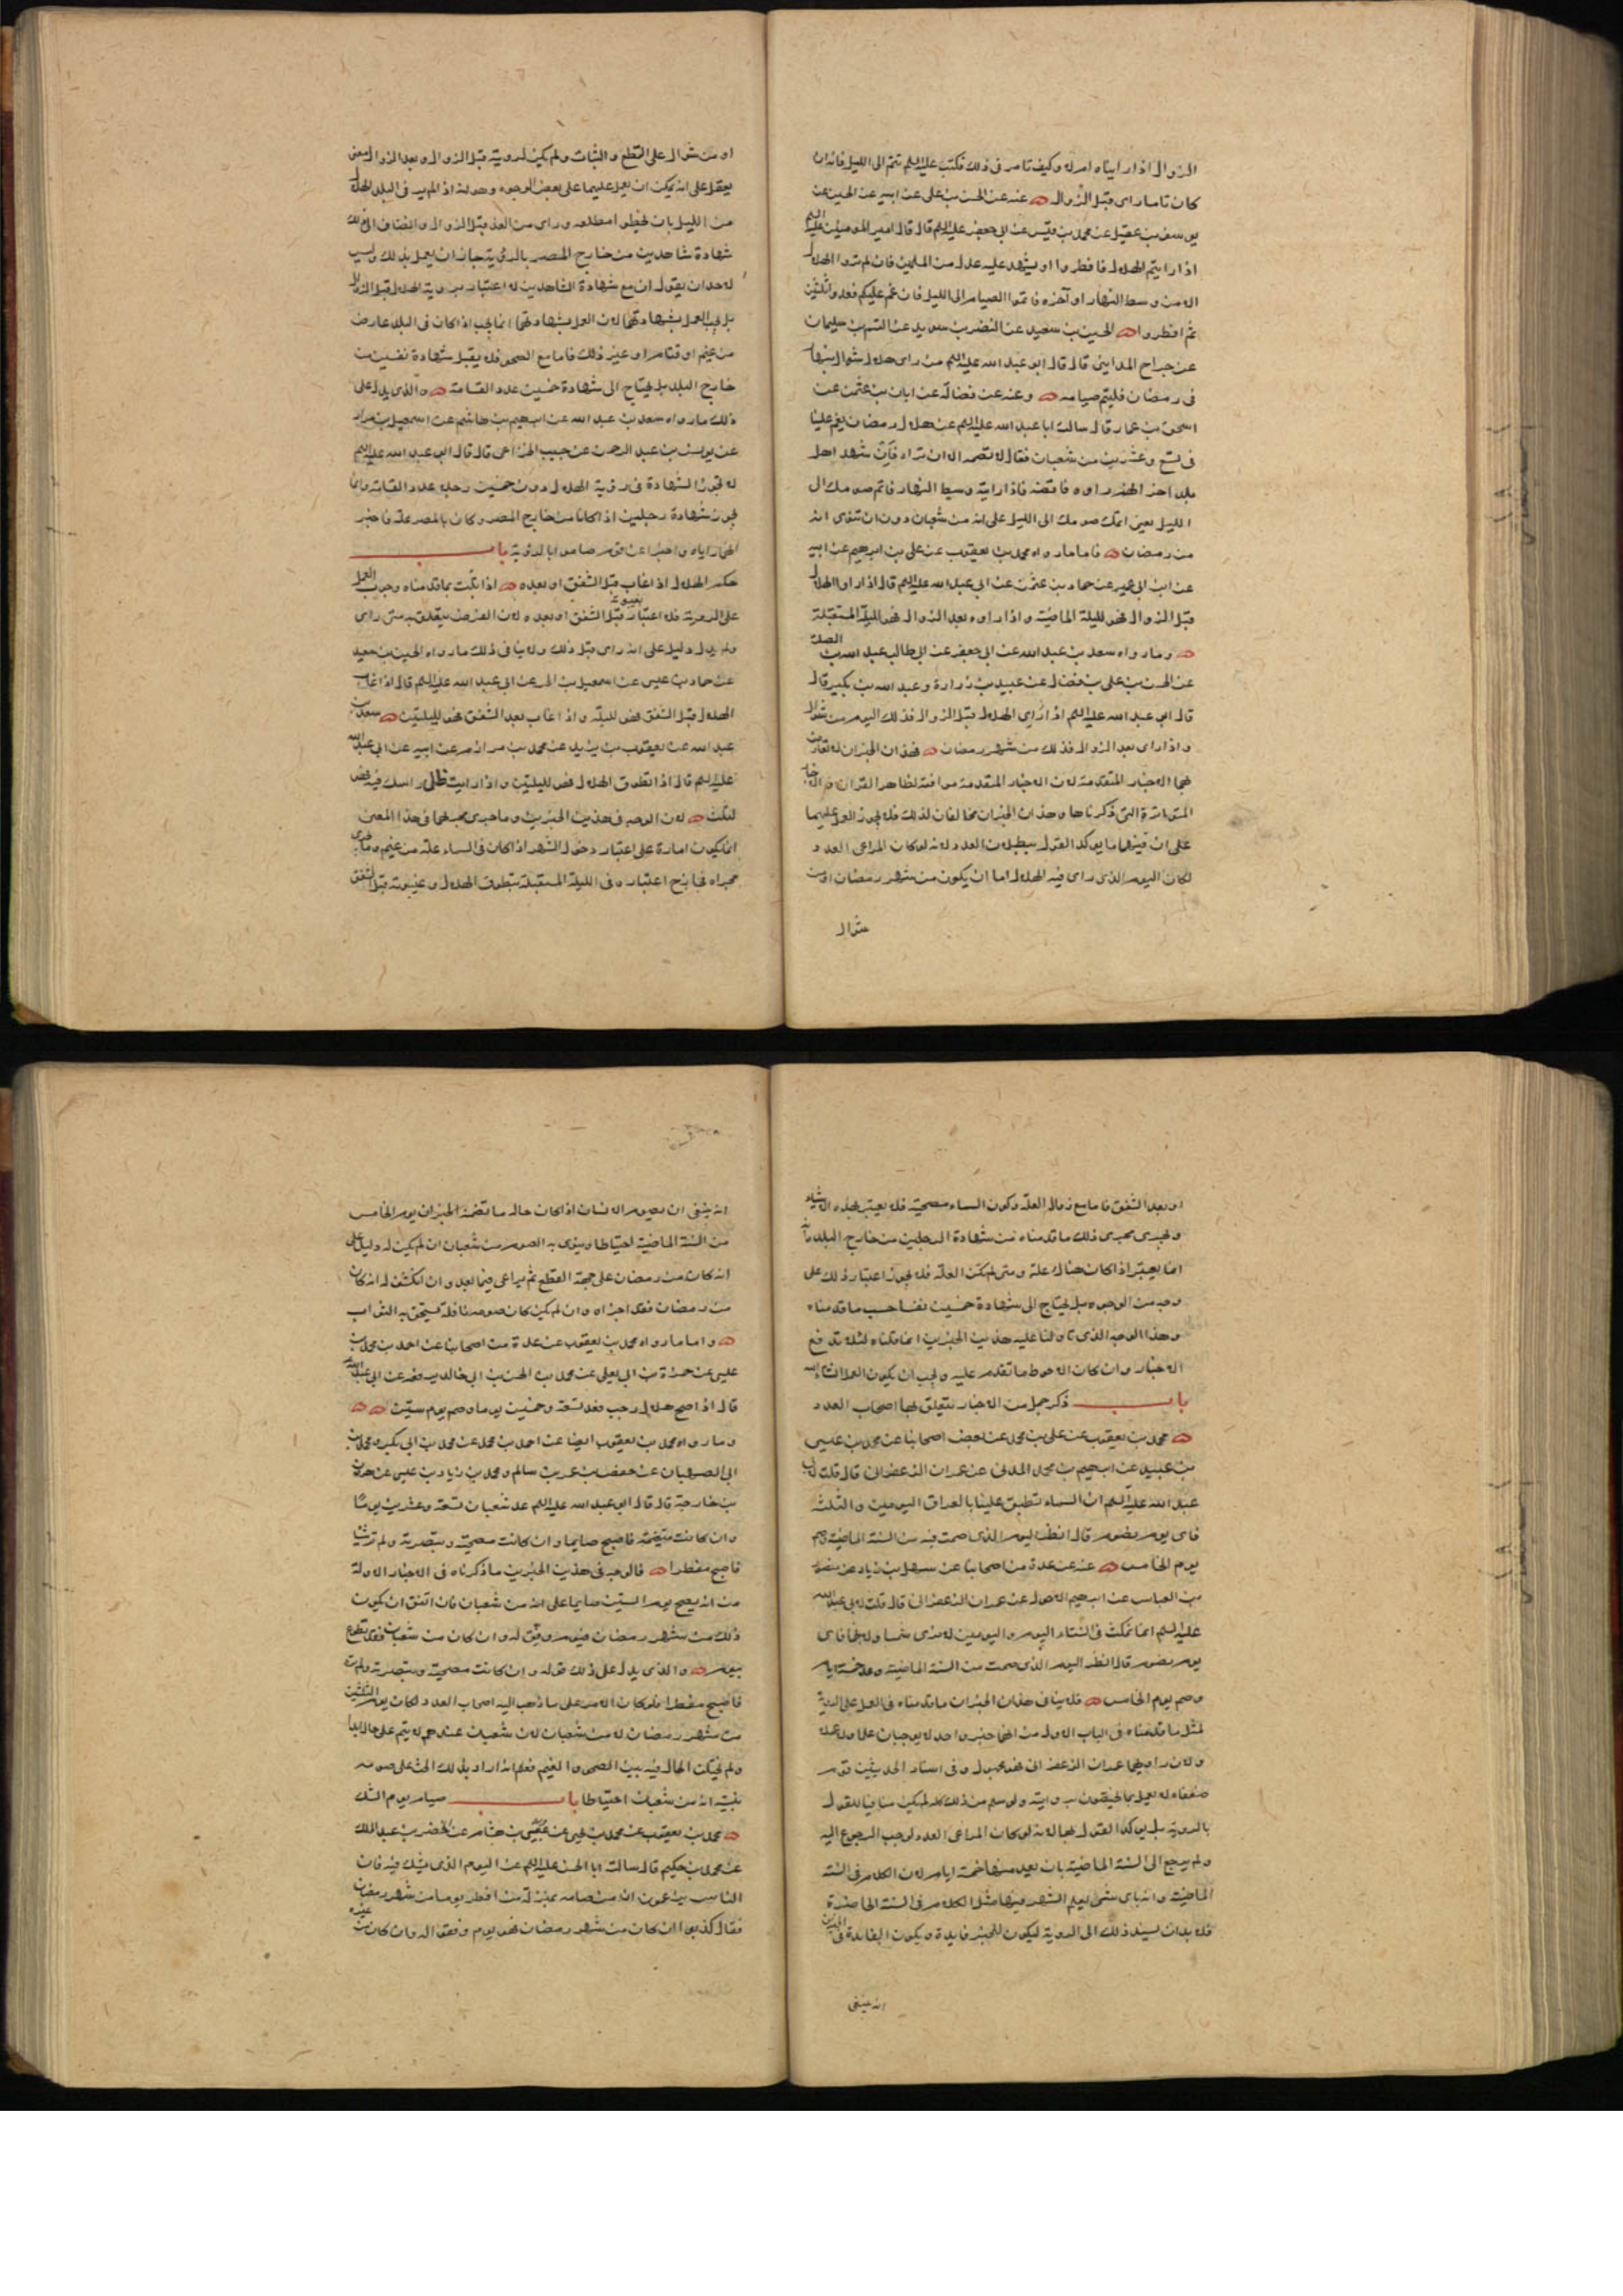 الزوال اذا رايناه ام لا وكيف تامر فى ذلك فكتب عليه السلم تتم الى الليل فانه ان
كان تاما راى قبل الزوال عنه عن الحسن بن على عن ابيه عن الحسين عن
يوسف بن عقيل عن محمد بن قيس عن ابى جعفر عليه السلم قال قال امير المومنين عليه السلم
اذا رايتم الهلال فافطروا او يشهد عليه عدل من المسلمين فان لم تروا الهلال
الا من وسط النهار او آخره فاتموا الصيام الى الليل فان غم عليكم فعدوا ثلثين
ثم افطروا الحسين بن سعيد عن النضر بن سويد عن القسم بن سليمان
عن جراح المداينى قال قال ابو عبد الله عليه السلم من راى هلال شوال بنهار
فى رمضان فليتم صيامه وعنه عن فضالة عن ابان بن عثمن عن
اسحق بن عمار قال سالت ابا عبد الله عليه السلم عن هلال رمضان يغم علينا
فى تسع وعشرين من شعبان فقال لا تصمه الا ان تراه فان شهد اهل
بلد آخر انهم راوه فاقضه فاذا رايته وسط النهار فاتم صومك الى
الليل يعنى اتمك صومك الى الليل على انه من شعبان دون ان تنوى انه
من رمضان فاما ما رواه محمد بن يعقوب عن على بن ابرهيم عن ابيه
عن ابن ابى عمير عن حماد بن عثمن عن ابى عبد الله عليه السلم قال اذا راوا الهلال
قبل الزوال فهو لليلة الماضية واذا راوه بعد الزوال فهو لليلة المستقبلة
وما رواه سعد بن عبد الله عن ابى جعفر عن ابى طالب عبد الله بن الصلت
عن الحسن بن على بن فضال عن عبيد بن زرارة وعبد الله بن بكير قال
قال ابو عبد الله عليه السلم اذا راى الهلال قبل الزوال فذلك اليوم من شوال
واذا راى بعد الزوال فذلك من شهر رمضان فهذان الخبران لا تعارض
بهما الاخبار المتقدمة لان الاخبار المتقدمة موافقة لظاهر القران والاخبار
المتواترة التى ذكرناها وهذان الخبران مخالفان لذلك فلا يجوز العمل عليهما
على ان فيهما ما يوكد القول ببطلان العدد لانه لو كان المراعى العدد
لكان اليوم الذى راى فيه الهلال اما ان يكون من شهر رمضان او من
شوال
او من شوال على القطع والثبات ولم يكن لرويته قبل الزوال وبعد الزوال معنى
يعقل على انه يمكن ان يعمل عليهما على بعض الوجوه وهو انه اذا لم ير فى البلد الهلال
من الليل بان يخطوا مطلعه وراى من الغد قبل الزوال وانضاف الى ذلك
شهادة شاهدين من خارج المصر بالرؤية جاز ان يعمل بذلك وليس
لاحد ان يقول ان مع شهادة الشاهدين لا اعتبار برويت الهلال قبل الزوال
بل يجب العمل بشهادتهما لان العمل بشهادتهما انما يجب اذا كان فى البلد عارض
من غيم او قتام او غير ذلك فاما مع الصحو فلا يقبل شهادة نفسين من
خارج البلد بل يحتاج الى شهادة خمسين عدد القسامة والذى يدل على
ذلك ما رواه سعد بن عبد الله عن ابرهيم بن هاشم عن اسمعيل بن مرار
عن يونس بن عبد الرحمن عن حبيب الخزاعى قال قال ابو عبد الله عليه السلم
لا تجوز الشهادة فى روية الهلال دون خمسين رجلا عدد القسامة وانما
يجوز شهادة رجلين اذا كانا من خارج المصر وكان بالمصر علة فاخبرا
انهما راياه واخبرا عن قوم صاموا بالروية باب
حكم الهلال اذا غاب قبل الشفق او بعده اذا ثبت بما قدمناه وجوب العمل
على الروية فلا اعتبار بغيبوبته قبل الشفق او بعده لان الفرض يتعلق به متى راى
ولم يدل دليل على انه راى قبل ذلك ولا ينافى ذلك ما رواه الحسين بن سعيد
عن حماد بن عيسى عن اسمعيل بن الحر عن ابى عبد الله عليه السلم قال اذا غاب
الهلال قبل الشفق فهو لليلة واذا غاب بعد الشفق فهو لليلتين سعد بن
عبد الله عن يعقوب بن يزيد عن محمد بن مرازم عن ابيه عن ابى عبد الله
عليه السلم قال اذا تطوق الهلال فهو لليلتين واذا رايت ظل راسك فيه فهو
لثلث لان الوجه فى هذين الخبرين وما جرى مجراهما فى هذا المعنى
انما يكون امارة على اعتبار دخول الشهر اذا كان فى السماء علة من غيم وما جرى
مجراه فجايز اعتباره فى الليلة المستقبلة بتطوق الهلال وغيبوبته قبل الشفق
او بعد الشفق فاما مع زوال العلة وكون السماء مصحية فلا يعتبر بهذه الاشياء
ويجرى مجرى ذلك ما قدمناه من شهادة الرجلين من خارج البلد فانه
انما يعتبر اذا كان هناك علة ومتى لم تكن العلة فلا يجوز اعتبار ذلك على
وجه من الوجوه بل يحتاج الى شهادة خمسين نفسا حسب ما قدمناه
وهذا الوجه الذى تاولنا عليه هذين الخبرين انما قلناه لئلا تدفع
الاخبار وان كان الاحوط ما تقدم عليه ويجب ان يكون العمل انشاء الله
باب ذكر جمل من الاخبار يتعلق بها اصحاب العدد
محمد بن يعقوب عن على بن محمد عن بعض اصحابنا عن محمد بن عيسى
بن عبيد عن ابرهيم بن محمد المدنى عن عمران الزعفرانى قال قلت لابى
عبد الله عليه السلم ان السماء تطبق علينا بالعراق اليومين والثلثة
فاى يوم نصوم قال انظر اليوم الذى صمت فيه من السنة الماضية وصم
يوم الخامس عنه عن عدة من اصحابنا عن سهل بن زياد عن منصور
بن العباس عن ابرهيم الاحول عن عمران الزعفرانى قال قلت لابى عبد الله
عليه السلم انما نمكث فى الشتاء اليوم واليومين لا نرى شمسا ولا نجما فاى
يوم نصوم قال انظر اليوم الذى صمت من السنة الماضية وعد خمسة ايام
وصم يوم الخامس فلا ينافى هذان الخبران ما قدمناه فى العمل على الروية
لمثل ما قدمناه فى الباب الاول من انهما خبر واحد لا يوجبان علما ولا عملا
ولان راويهما عمران الزعفرانى فهو مجهول وفى اسناد الحديثين قوم
ضعفاء لا نعمل بما يختصون بروايته ولو سلم من ذلك كله لم يكن منافيا للقول
بالروية بل يوكد القول بها لانه لو كان المراعى العدد لوجب الرجوع اليه
ولم يرجع الى السنة الماضية بان يعد منها خمسة ايام لان الكلام فى السنة
الماضية وانه باى شىء يعلم الشهر فيها مثل الكلام فى السنة الحاضرة
فلا بد ان يسند ذلك الى الروية ليكون للخبر فايدة ويكون الفايدة فى الخبرين
انه ينبغى
انه ينبغى ان يصوم الانسان اذا كان حاله ما تضمنه الخبران يوم الخامس
من السنة الماضية احتياطا وينوى به الصوم من شعبان ان لم يكن له دليل على
انه كان من رمضان على جهة القطع ثم يراعى فيما بعد وان انكشف له انه كان
من رمضان فقد اجزاه وان لم يكن كان صومه نافلة يستحق به الثواب
واما ما رواه محمد بن يعقوب عن عدة من اصحابنا عن احمد بن محمد بن
عيسى عن حمزة بن ابى يعلى عن محمد بن الحسن بن ابى خالد يرفعه عن ابى عبد الله
قال اذا صح هلال رجب فعد تسعة وخمسين يوما وصم يوم ستين
وما رواه محمد بن يعقوب ايضا عن احمد بن محمد عن محمد بن ابى بكر ومحمد بن
ابى الصهبان عن حفص بن عمر بن سالم ومحمد بن زياد بن عيسى عن هرون
بن خارجة قال قال ابو عبد الله عليه السلم عد شعبان تسعة وعشرين يوما
وان كانت متغيمة فاصبح صايما وان كانت مصحية وتبصرته ولم تر شيئا
فاصبح مفطرا فالوجه فى هذين الخبرين ما ذكرناه فى الاخبار الاولة
من انه يصبح يوم الستين صايما على انه من شعبان فان اتفق ان يكون
ذلك من شهر رمضان فيوم وفق له وان كان من شعبان فقد تطوع
بيوم والذى يدل على ذلك قوله وان كانت مصحية وتبصرته ولم تر
فاصبح مفطرا فلو كان الامر على ما ذهب اليه اصحاب العدد لكان يوم الثلثين
من شهر رمضان لا من شعبان لان شعبان عندهم لا يتم على حال ابدا
ولم يختلف الحال فيه بين الصحو والغيم فعلم انه اراد بذلك الحث على صومه
بنية انه من شعبان احتياطا باب صيام يوم الشك
محمد بن يعقوب عن محمد بن يحيى عن عيسى بن هشام عن الخضر بن عبد الملك
عن محمد بن حكيم قال سالت ابا الحسن عليه السلم عن اليوم الذى يشك فيه فان
الناس يزعمون ان من صامه بمنزلة من افطر يوما من شهر رمضان
فقال كذبوا ان كان من شهر رمضان فهو يوم وفقوا له وان كان من غيره